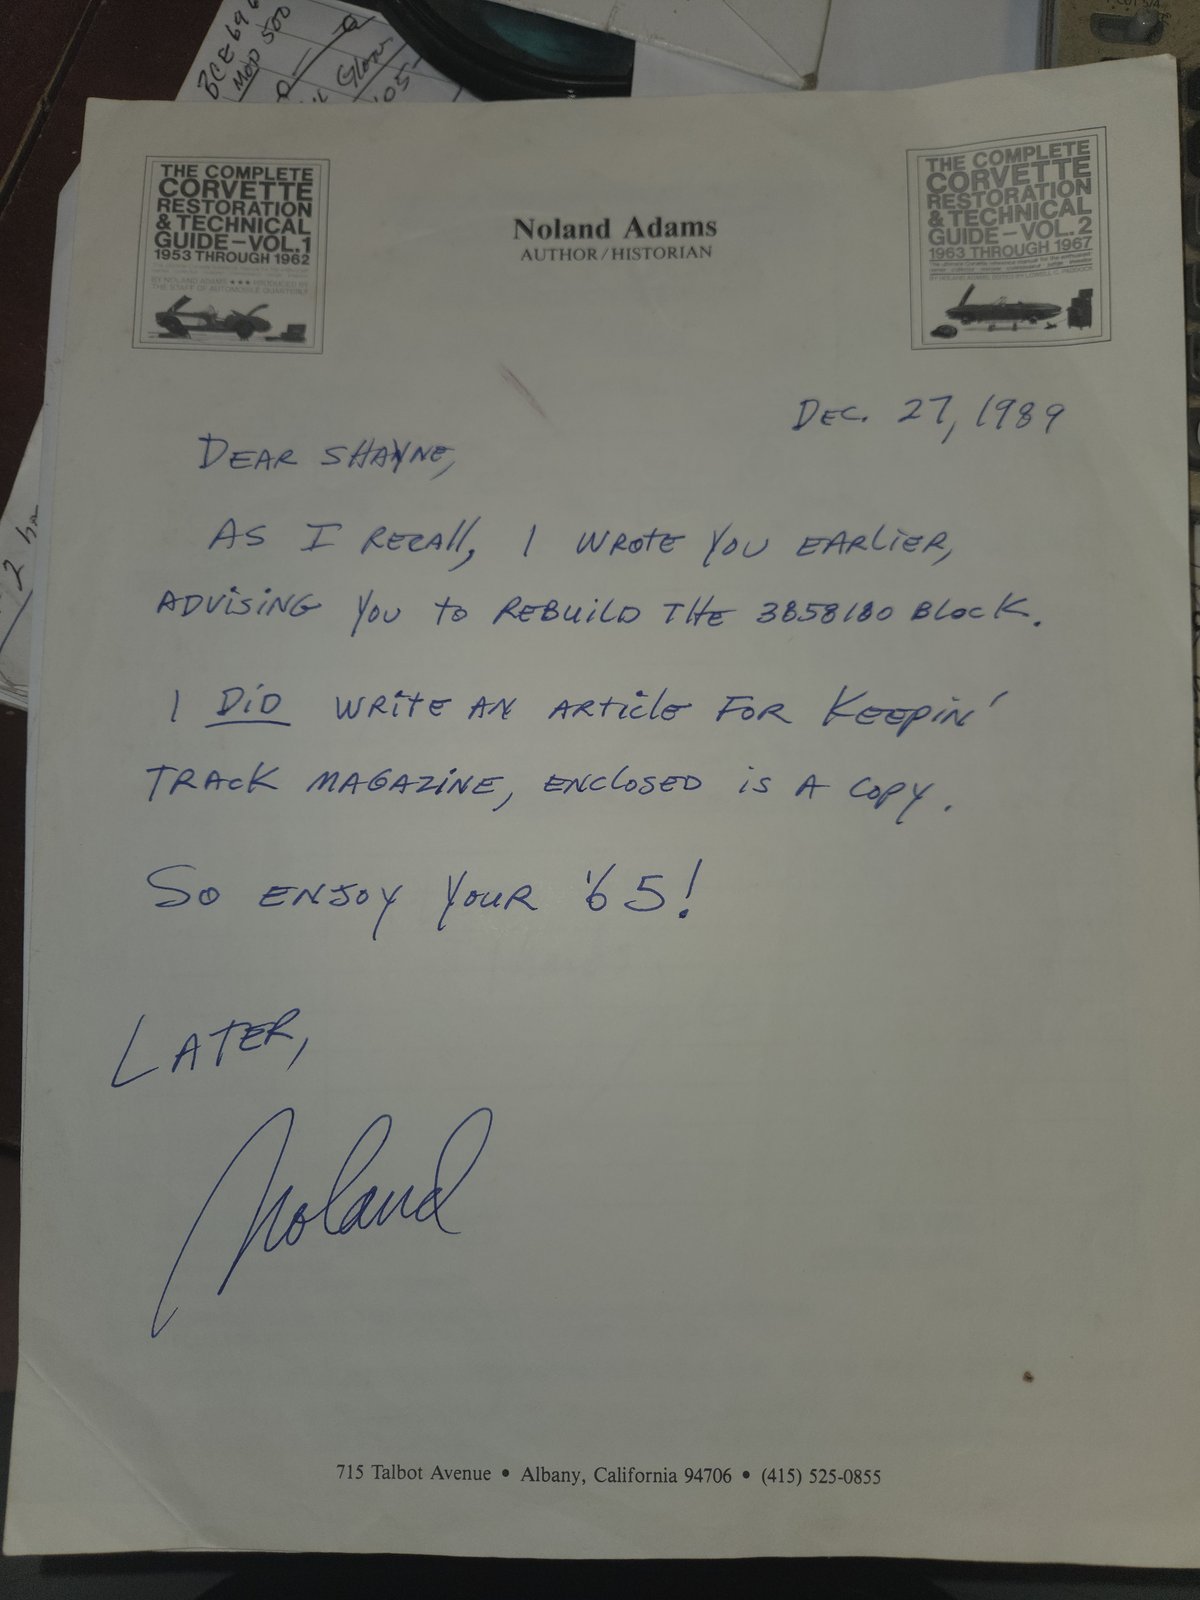 BCE 696
MOP 500
Glow
105
THE COMPLETE
CORVETTE
RESTORATION
& TECHNICAL
GUIDE–VOL.1
1953 THROUGH 1962
BY NOLAND ADAMS ★★★ PRODUCED BY
THE STAFF OF AUTOMOBILE QUARTERLY
Noland Adams
AUTHOR/HISTORIAN
THE COMPLETE
CORVETTE
RESTORATION
& TECHNICAL
GUIDE–VOL.2
1963 THROUGH 1967
DEC. 27, 1989
DEAR SHAYNE,
AS I RECAll, I WROTE YOU EARLIER,
ADVISING YOU to REBUILD THE 3858180 BLOCK.
I DiD WRITE AN ARTICLE FOR KEEPIN'
TRACK MAGAZINE, ENCLOSED IS A COPY.
SO ENJOY YOUR '65!
LATER,
Noland
715 Talbot Avenue • Albany, California 94706 • (415) 525-0855